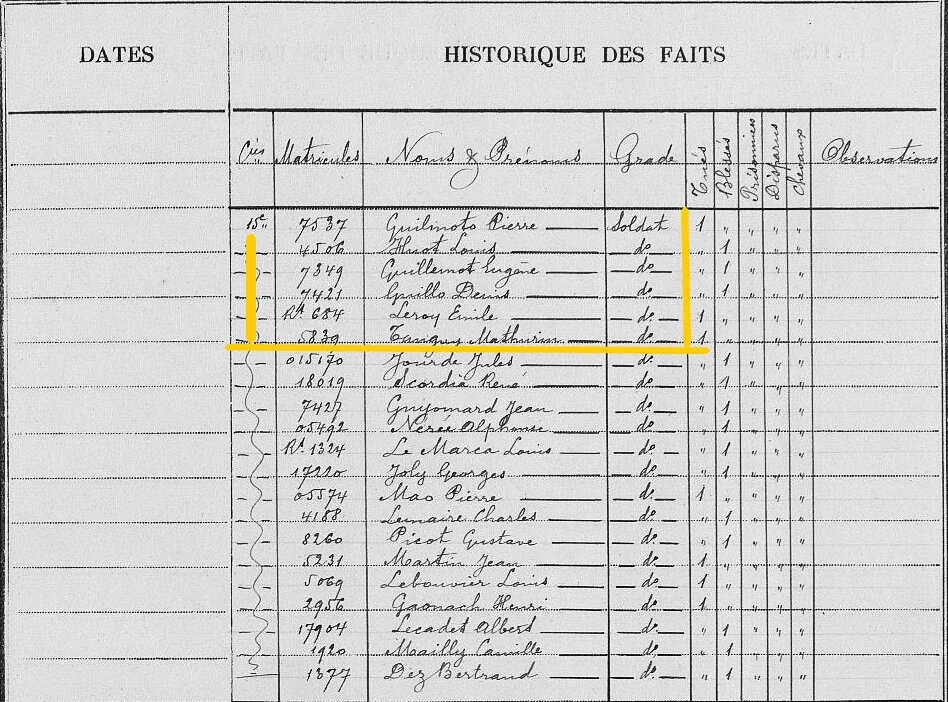 DATES HISTORIQUE DES FAITS
Cies Matricules Noms & Prénoms Grade Tués Blessés Prisonniers Disparus Chevaux Observations
15e 7537 Guilmoto Pierre Soldat 1 " " " "
4506 Huot Louis do " 1 " " "
7349 Guillemot Eugène do " 1 " " "
7421 Guillo Denis do " 1 " " "
Rt 684 Leroy Emile do 1 " " " "
5839 Tanguy Mathurin do 1 " " " "
015170 Jourde Jules do " 1 " " "
18019 Scordia René do " 1 " " "
7427 Guyomard Jean do " 1 " " "
05492 Nerée Alphonse do " 1 " " "
Rt 1324 Le Marca Louis do " 1 " " "
17220 Joly Georges do " 1 " " "
05574 Mao Pierre do 1 " " " "
4188 Lemaire Charles do " 1 " " "
8260 Picot Gustave do " 1 " " "
5231 Martin Jean do 1 " " " "
5069 Lebouvier Louis do 1 " " " "
2956 Gaonach Henri do 1 " " " "
17904 Lecadet Albert do " 1 " " "
1920 Mailly Camille do " 1 " " "
1377 Dez Bertrand do " 1 " " "